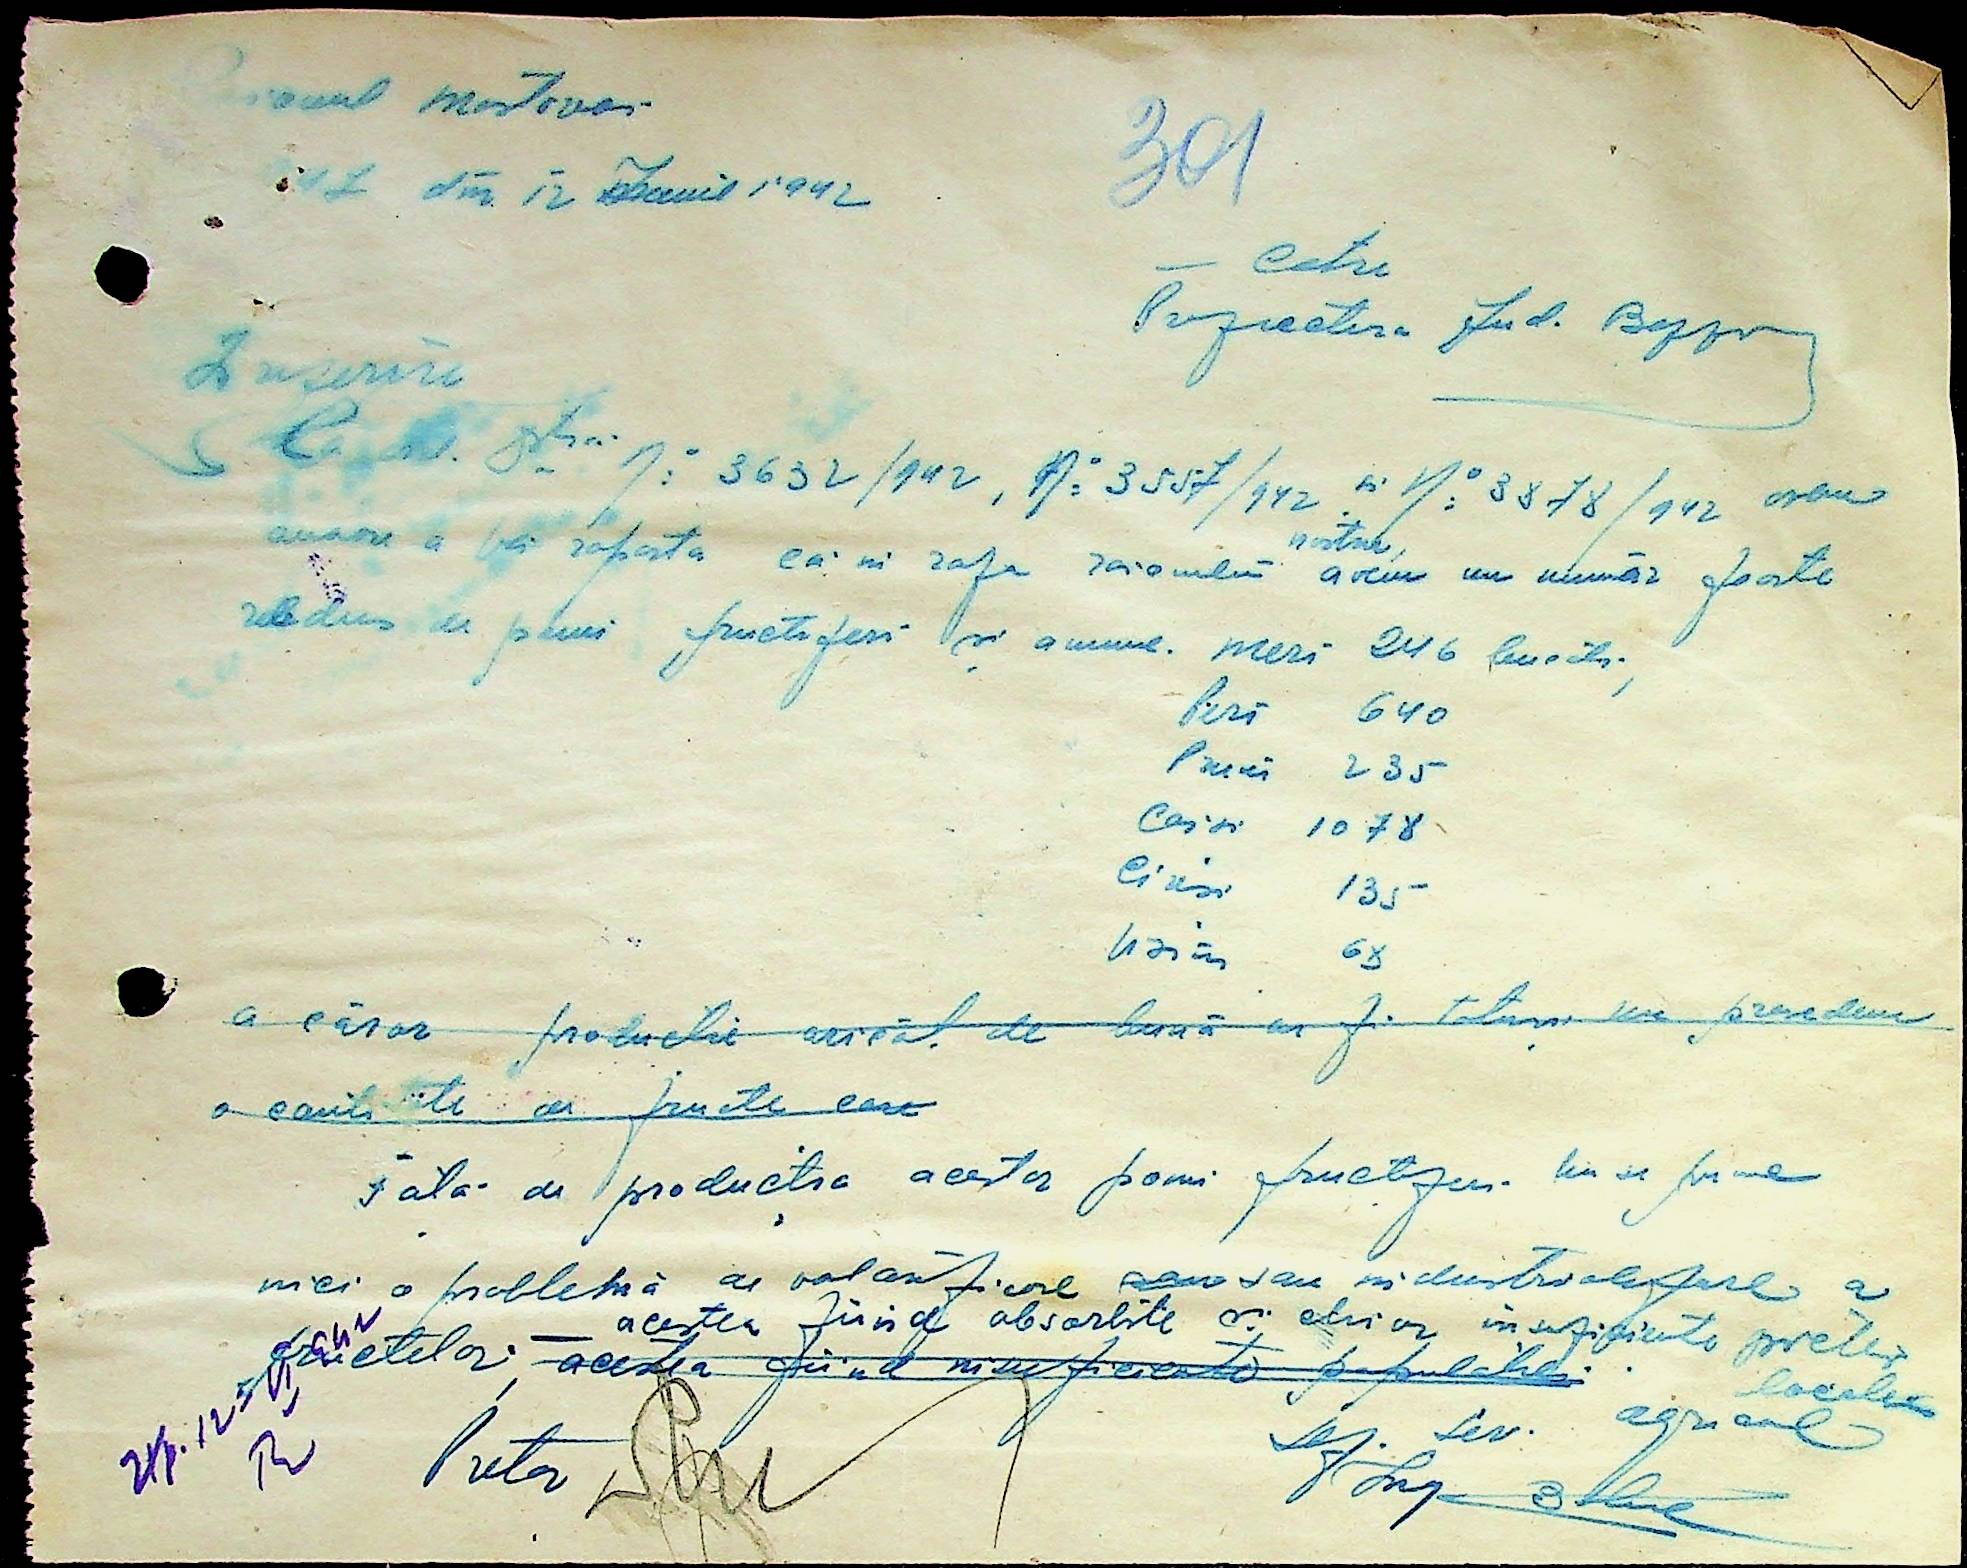 Raionul Mostovoi
din 12 Iunie 1942
301
— Catre
Prefectura Jud.
La ord. Nº 3632/942, Nº 3557/942 si Nº 3878/942 avem
onoare a vă raporta că in raza raionului nostru, avem un număr foarte
redus de pomi fructiferi și anume. Meri 246 bucăți,
Peri 640
Pruni 235
Caisi 1078
Cireși 135
Visini 68
a căror productie oricât de bună ar fi totuși nu prevedem
o cantitate de fructe care
Față de producția acestor pomi fructiferi nu se pune
nici o problemă de valorificare sau industrializare a
fructelor, — acestea fiind absorbite și chiar insuficiente
acestea fiind insuficiente populatiei.
locale
Pretor
Șef. Serv. agricol
Ing